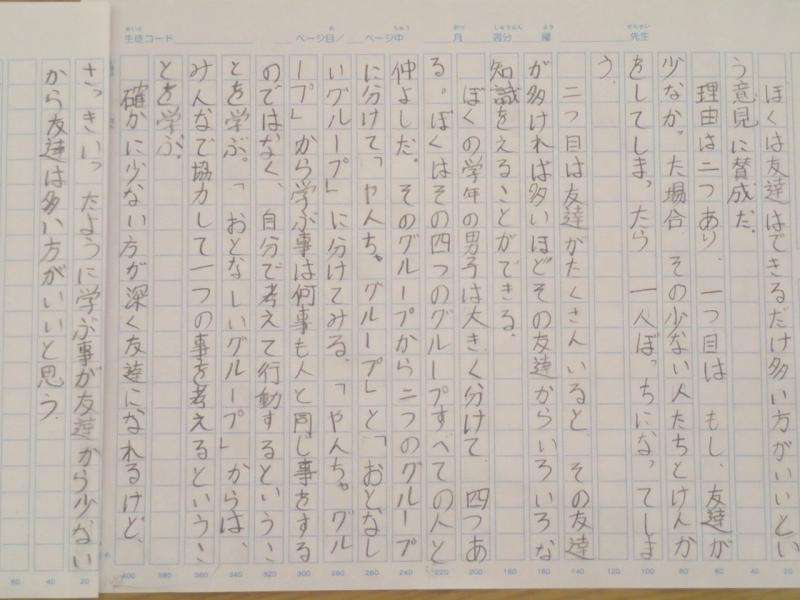 生徒コード ページ目／ ページ中 月 週分 曜 先生
せいと め ちゅう がつ しゅうぶん よう せんせい
ぼくは友達はできるだけ多い方がいいとい
う意見に賛成だ。
理由は二つあり、一つ目は、もし、友達が
少なかった場合、その少ない人たちとけんか
をしてしまったら、一人ぼっちになってしま
う。
二つ目は友達がたくさんいると、その友達
が多ければ多いほどその友達からいろいろな
知識をえることができる。
ぼくの学年の男子は大きく分けて、四つあ
る。ぼくはその四つのグループすべての人と
仲よした。そのグループから二つのグループ
に分けて「やんちゃグループ」と「おとなし
いグループ」に分けてみる。「やんちゃグル
ープ」から学ぶ事は何事も人と同じ事をする
のではなく、自分で考えて行動するというこ
とを学ぶ。「おとなしいグループ」からは、
みんなで協力して一つの事を考えるというこ
とを学ぶ。
確かに少ない方が深く友達になれるけど、
さっきいったように学ぶ事が友達から少ない
から友達は多い方がいいと思う。
20 40 60 80 100 120 140 160 180 200 220 240 260 280 300 320 340 360 380 400
20 40 60